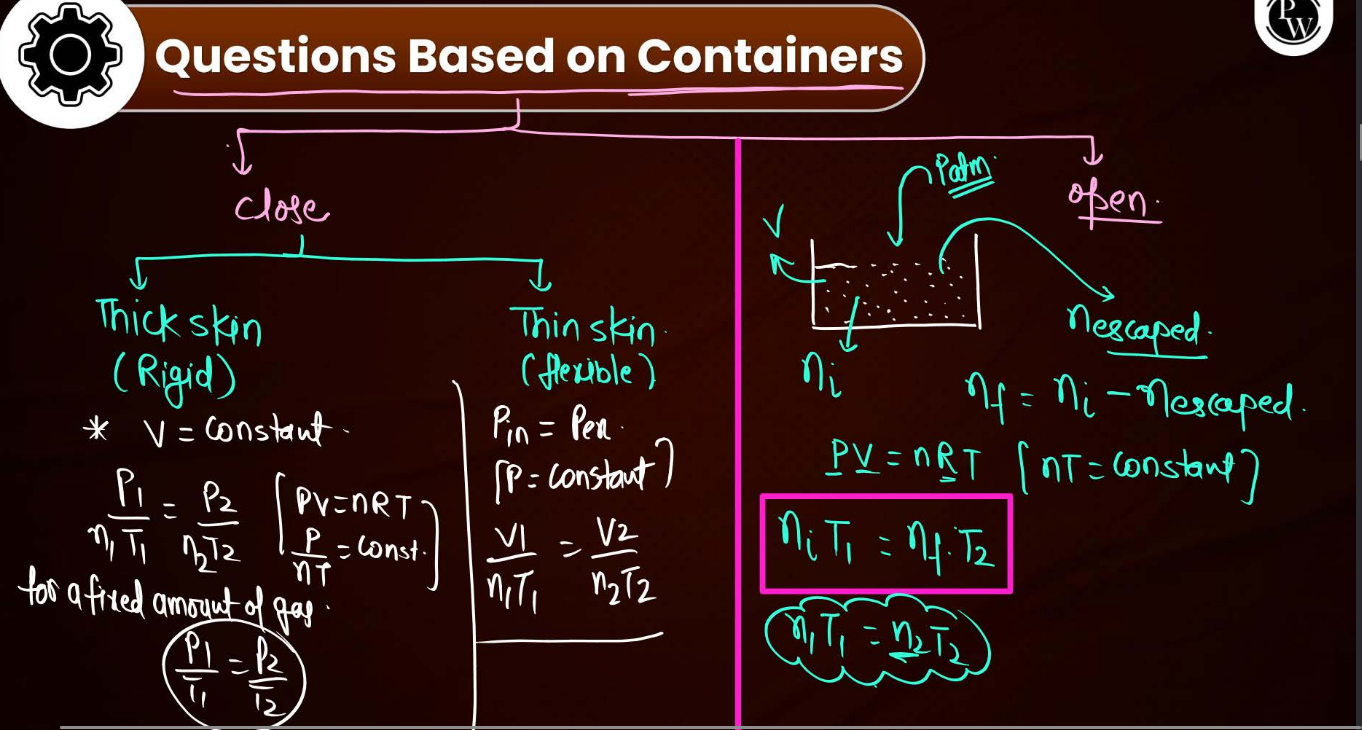 Questions Based on Containers
PW
close
open.
Thick skin
(Rigid)
* V = constant.
P1/n1T1 = P2/n2T2 [PV=nRT
P/nT = const.]
for a fixed amount of gas.
P1/T1 = P2/T2
Thin skin.
(flexible)
Pin = Pex.
[P = constant]
V1/n1T1 = V2/n2T2
Patm.
V
ni
nescaped.
nf = ni - nescaped.
PV = nRT [nT = constant]
niT1 = nf.T2
n1T1 = n2T2